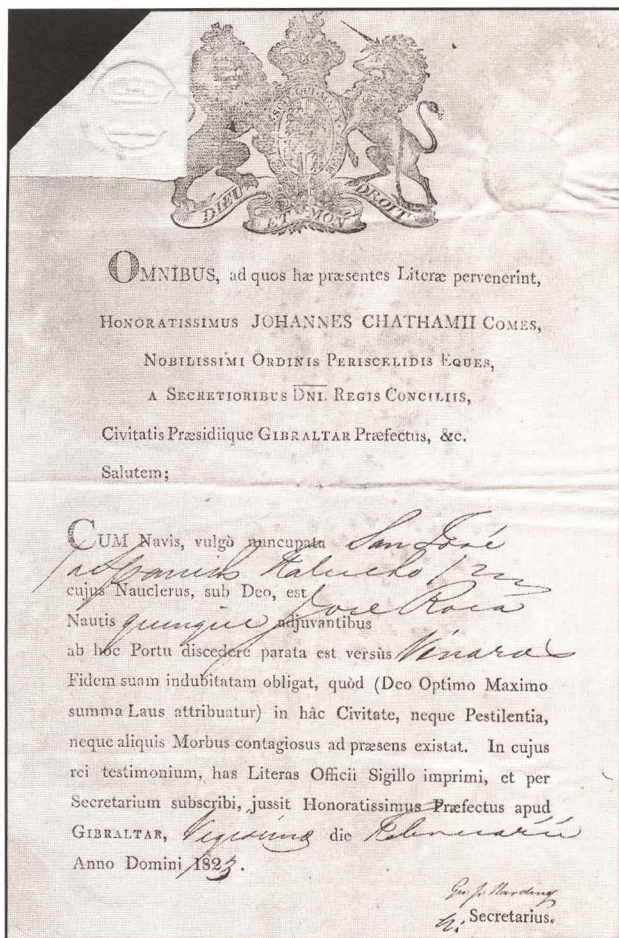 DIEU ET MON DROIT
OMNIBUS, ad quos hæ præsentes Literæ pervenerint,
HONORATISSIMUS JOHANNES CHATHAMII COMES,
NOBILISSIMI ORDINIS PERISCELIDIS EQUES,
A SECRETIORIBUS DNI. REGIS CONCILIIS,
Civitatis Præsidiique GIBRALTAR Præfectus, &c.
Salutem;
CUM Navis, vulgò nuncupata San José
a Spanish
cujus Nauclerus, sub Deo, est José Roca
Nautis quinque adjuvantibus
ab hôc Portu discedere parata est versùs Vinaros
Fidem suam indubitatam obligat, quòd (Deo Optimo Maximo
summa Laus attribuatur) in hâc Civitate, neque Pestilentia,
neque aliquis Morbus contagiosus ad præsens existat. In cujus
rei testimonium, has Literas Officii Sigillo imprimi, et per
Secretarium subscribi, jussit Honoratissimus Præfectus apud
GIBRALTAR, Vigesimo die Februarii
Anno Domini 1823.
Harding
Secretarius.